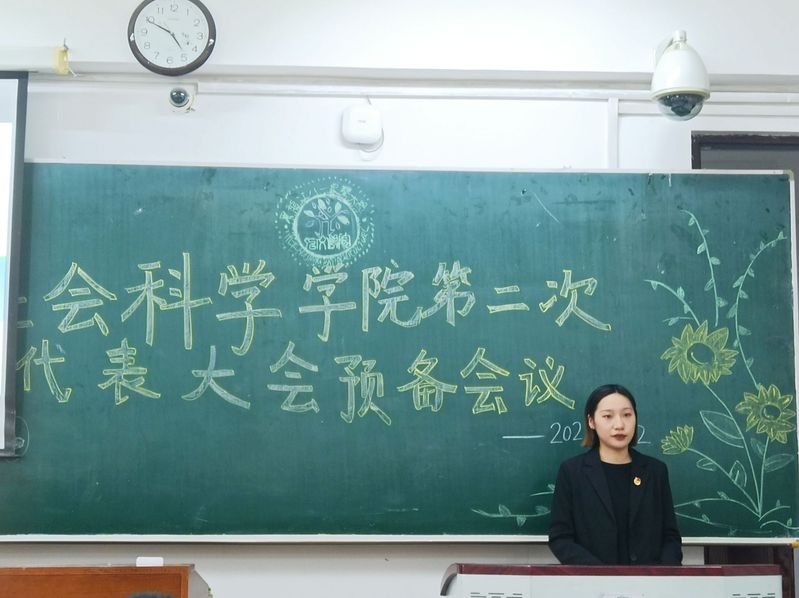 会科学学院第二次
代表大会预备会议